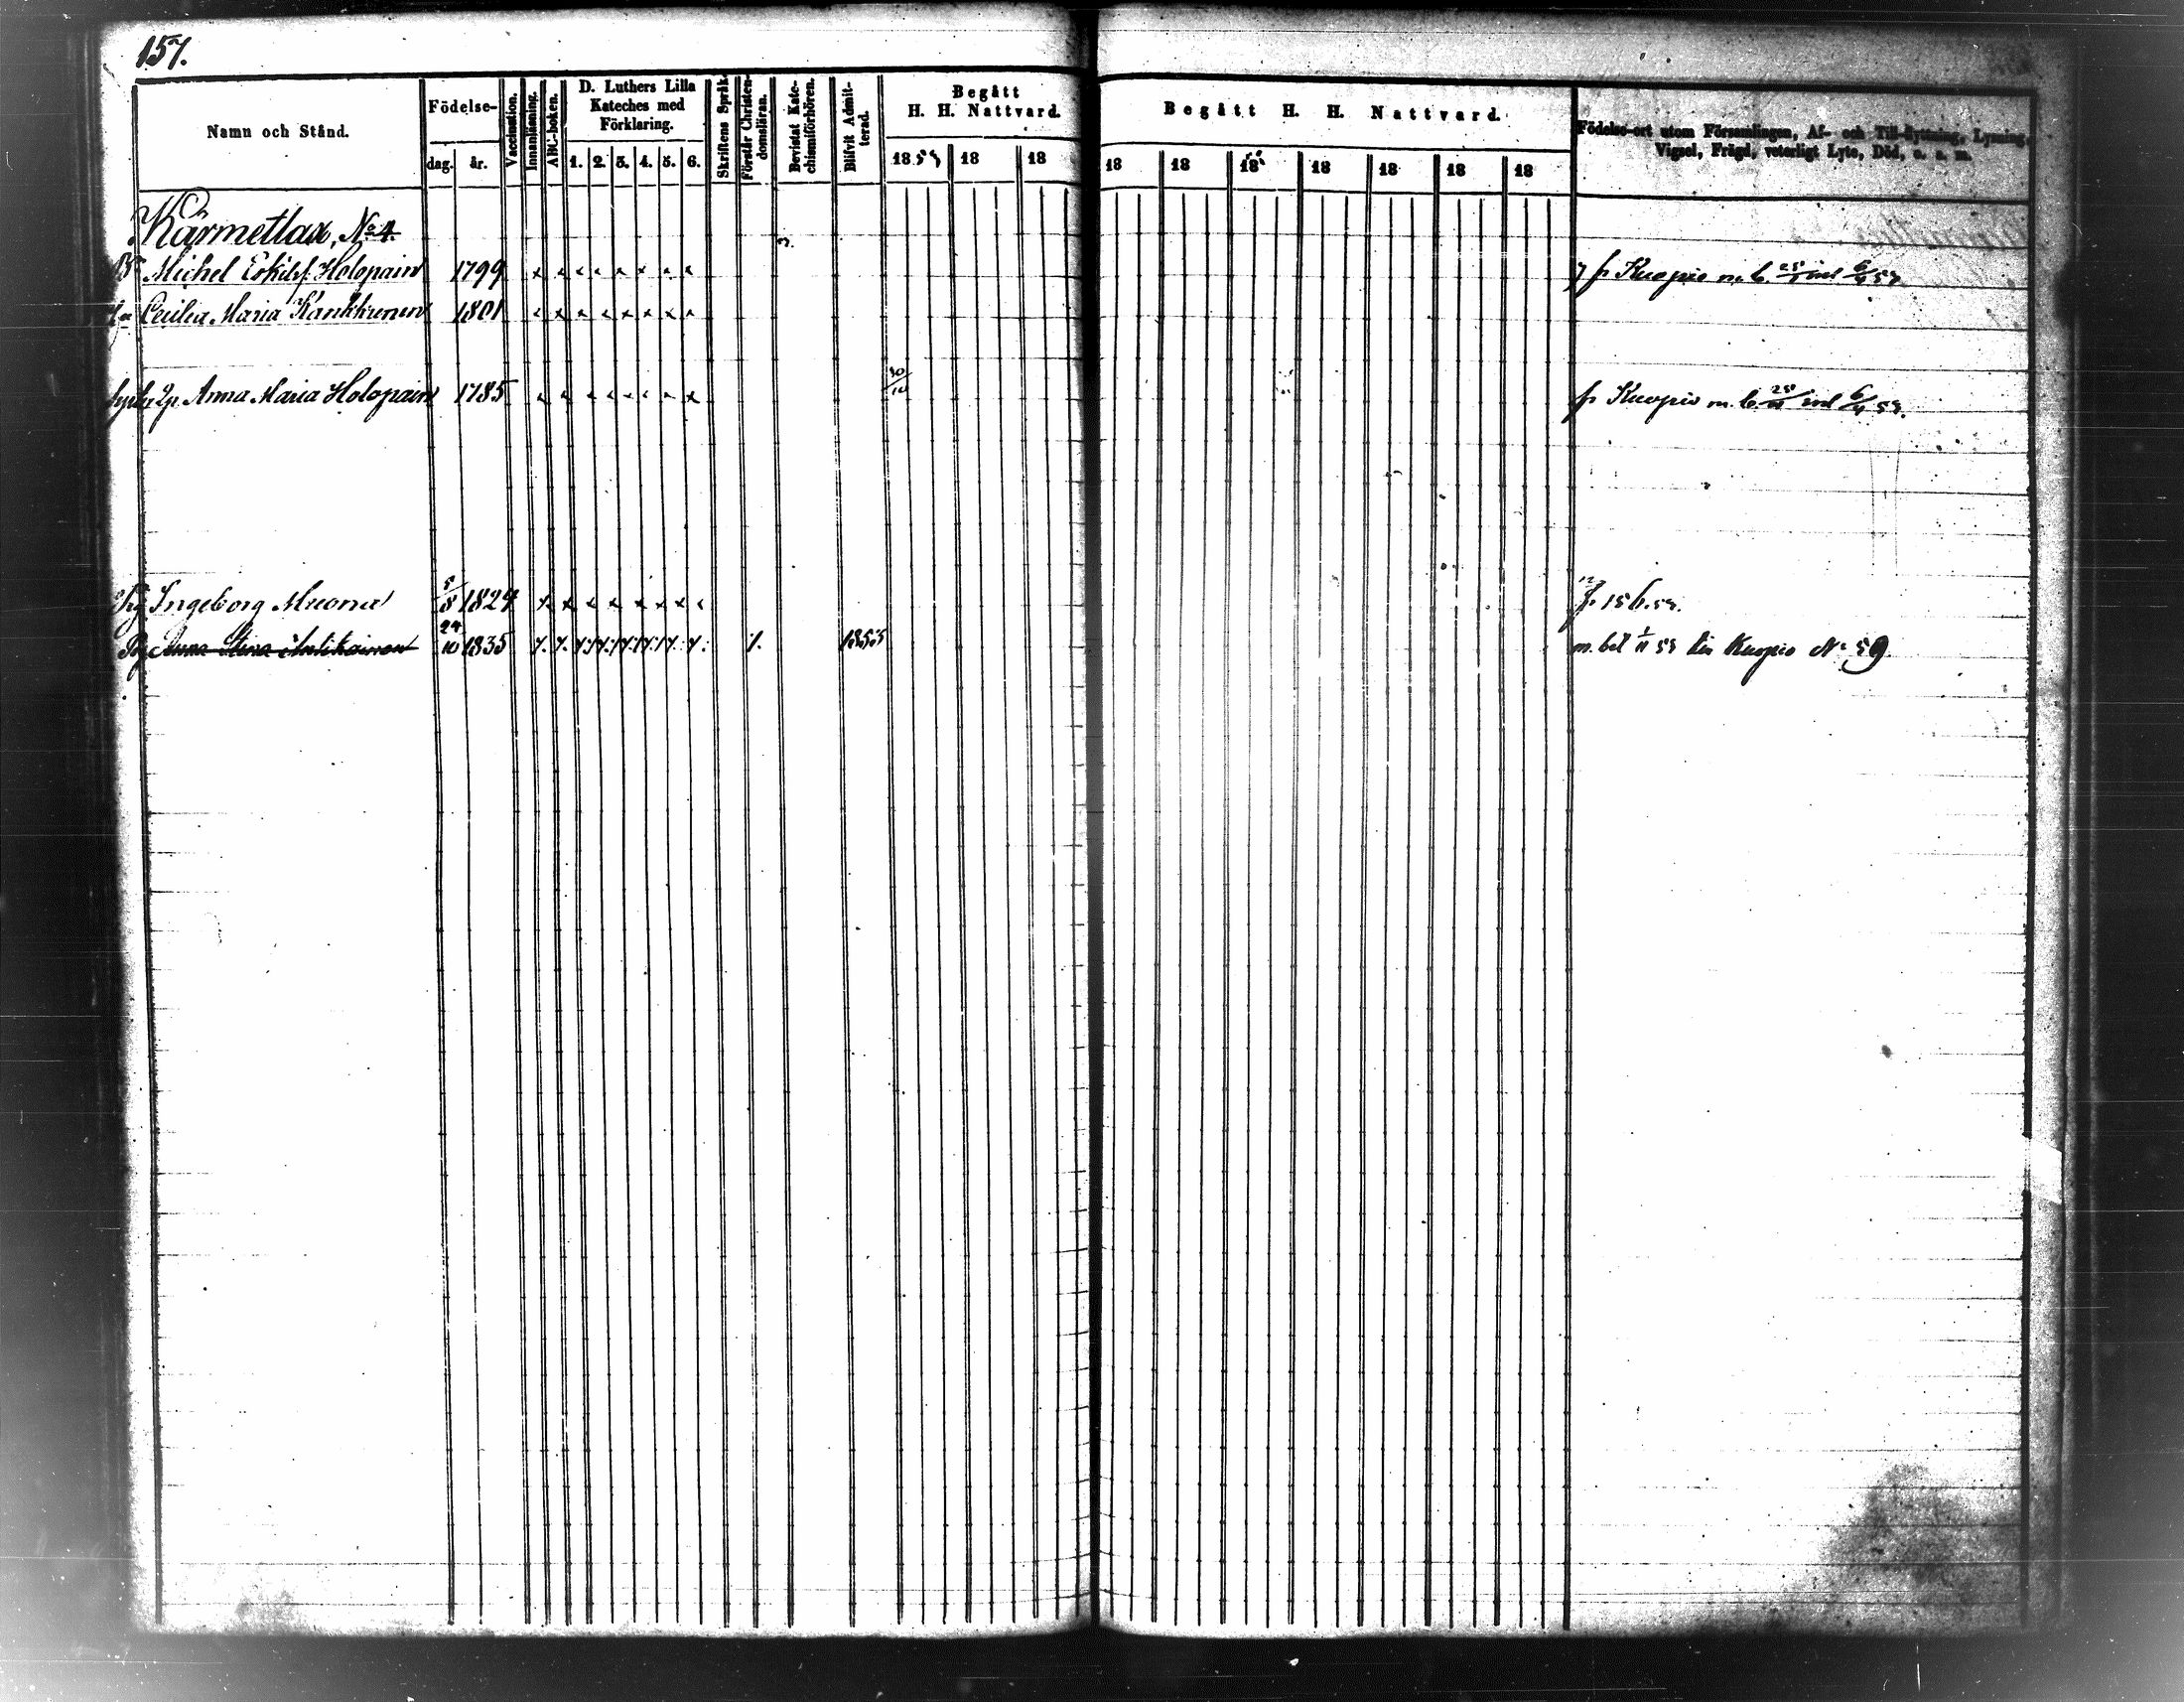 157.
Namn och Stånd.
Födelse-
dag. år.
Vaccination.
Innanläsning.
ABC-boken.
D. Luthers Lilla
Kateches med
Förklaring.
1. 2. 3. 4. 5. 6.
Skriftens Språk.
Förstår Christen-
domsläran.
Bevistat Kate-
chismiförhören.
Blifvit Admit-
terad.
Begått
H. H. Nattvard.
18 18 18
Begått H. H. Nattvard.
18 18 18 18 18 18 18
Födelse-ort utom Församlingen, Af- och Till-flyttning, Lysning,
Vigsel, Frägd, veterligt Lyte, Död, o. s. m.
Kärmetlax, No 4.
Michel Eskilsf. Holopain 1799 fr Kuopio m. b.
Cecilia Maria Kankkunen 1801
Anna Maria Holopain 1785 30/10 fr Kuopio m. b.
Ingeborg 5/8 1827 fr 156.
Anna Stina 24/10 1835 1855 m. bet till Kuopio No 59